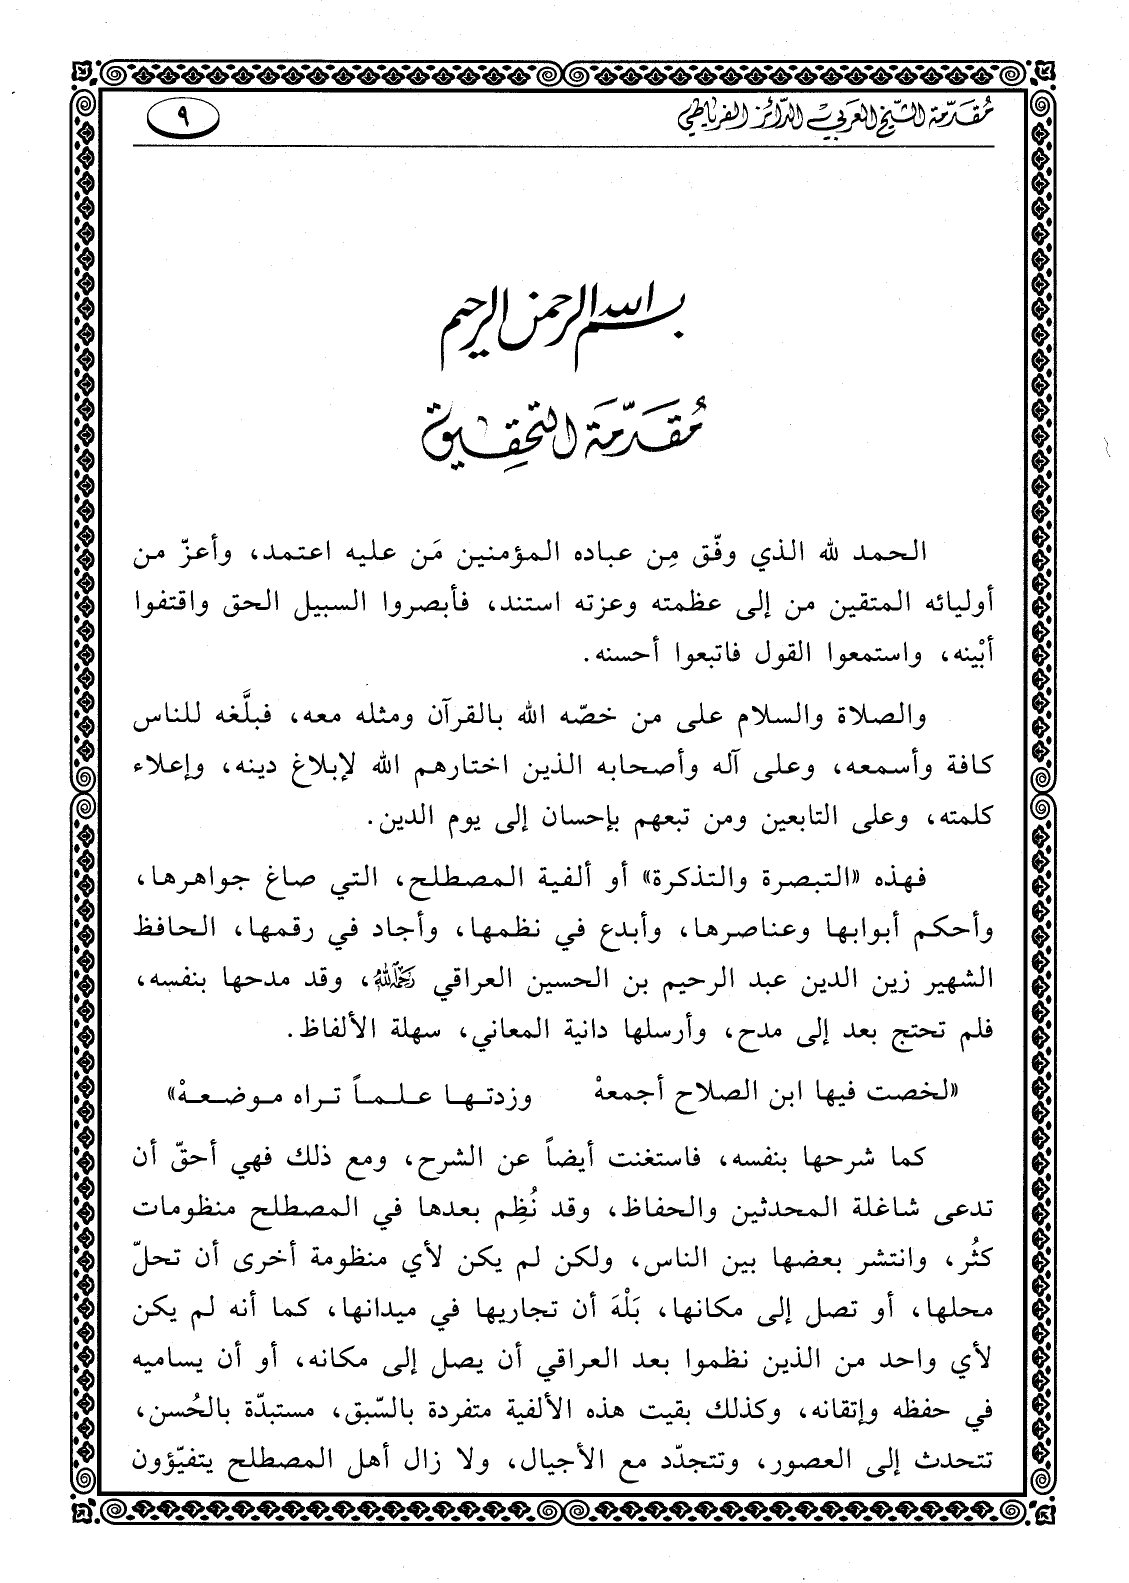 مُقَدِّمَة الشَّيْخ العَرَبي الدَّائز الفرياطي
٩
بسم الله الرحمن الرحيم
مُقَدِّمَة التَّحقِيق
الحمد لله الذي وفّق مِن عباده المؤمنين مَن عليه اعتمد، وأعزّ من
أوليائه المتقين من إلى عظمته وعزته استند، فأبصروا السبيل الحق واقتفوا
أبْينه، واستمعوا القول فاتبعوا أحسنه.
والصلاة والسلام على من خصّه الله بالقرآن ومثله معه، فبلَّغه للناس
كافة وأسمعه، وعلى آله وأصحابه الذين اختارهم الله لإبلاغ دينه، وإعلاء
كلمته، وعلى التابعين ومن تبعهم بإحسان إلى يوم الدين.
فهذه «التبصرة والتذكرة» أو ألفية المصطلح، التي صاغ جواهرها،
وأحكم أبوابها وعناصرها، وأبدع في نظمها، وأجاد في رقمها، الحافظ
الشهير زين الدين عبد الرحيم بن الحسين العراقي رَحِمَهُ اللهُ، وقد مدحها بنفسه،
فلم تحتج بعد إلى مدح، وأرسلها دانية المعاني، سهلة الألفاظ.
«لخصت فيها ابن الصلاح أجمعهْ وزدتها علماً تراه موضعهْ»
كما شرحها بنفسه، فاستغنت أيضاً عن الشرح، ومع ذلك فهي أحقّ أن
تدعى شاغلة المحدثين والحفاظ، وقد نُظِم بعدها في المصطلح منظومات
كثُر، وانتشر بعضها بين الناس، ولكن لم يكن لأي منظومة أخرى أن تحلّ
محلها، أو تصل إلى مكانها، بَلْهَ أن تجاريها في ميدانها، كما أنه لم يكن
لأي واحد من الذين نظموا بعد العراقي أن يصل إلى مكانه، أو أن يساميه
في حفظه وإتقانه، وكذلك بقيت هذه الألفية متفردة بالسّبق، مستبدّة بالحُسن،
تتحدث إلى العصور، وتتجدّد مع الأجيال، ولا زال أهل المصطلح يتفيّؤون